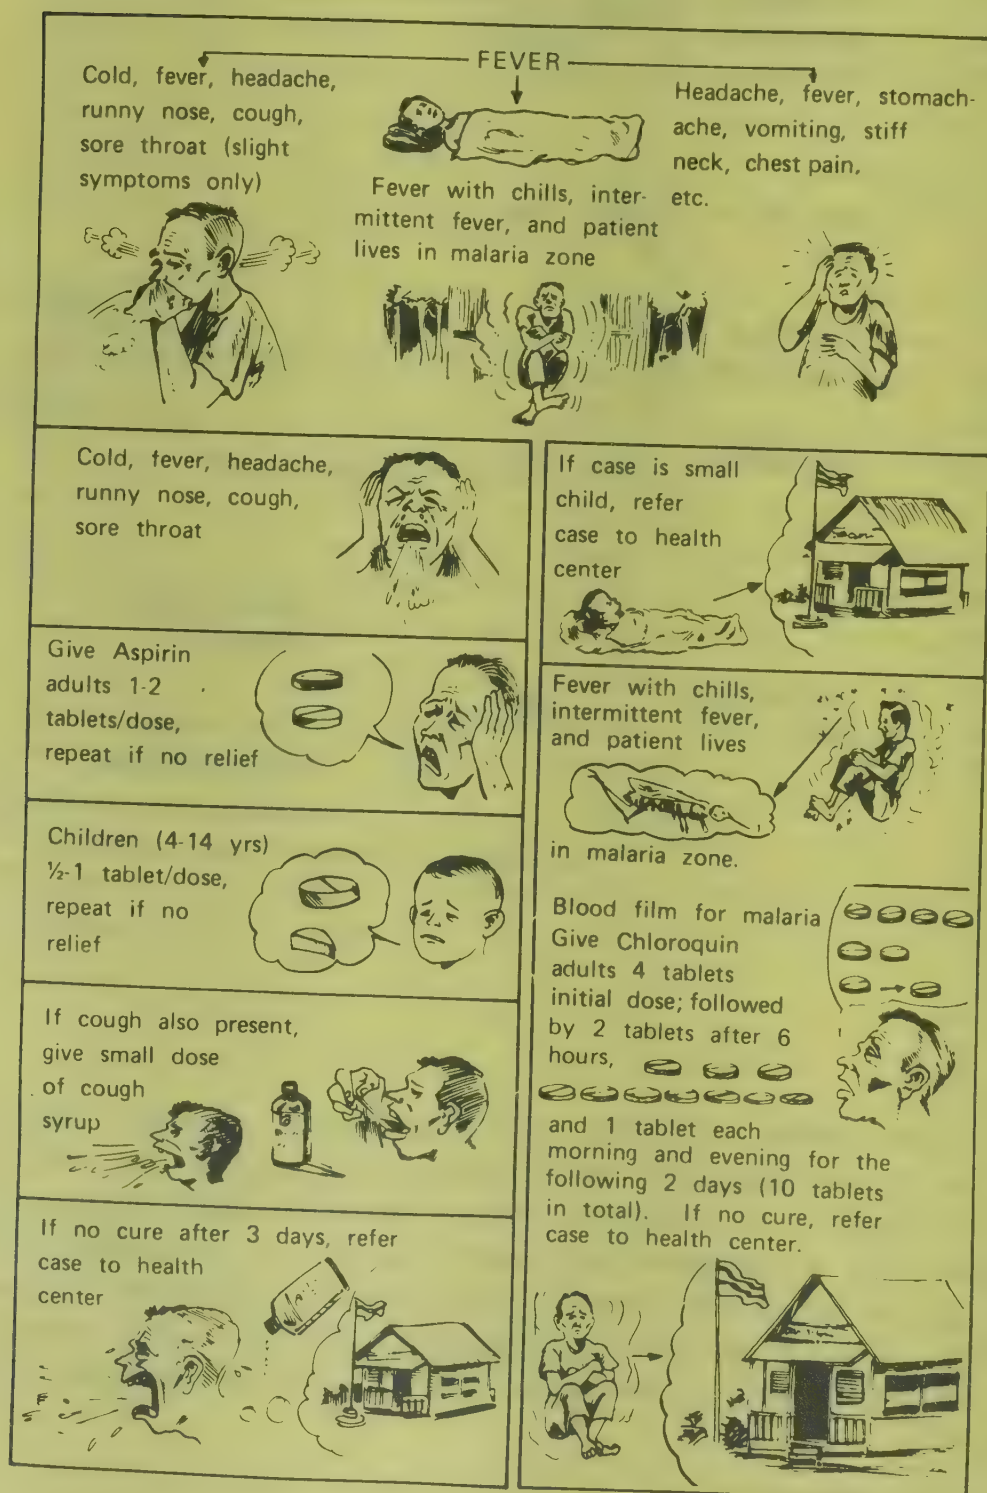 FEVER
Cold, fever, headache,
runny nose, cough,
sore throat (slight
symptoms only)
Fever with chills, inter-
mittent fever, and patient
lives in malaria zone
Headache, fever, stomach-
ache, vomiting, stiff
neck, chest pain,
etc.
Cold, fever, headache,
runny nose, cough,
sore throat
Give Aspirin
adults 1-2
tablets/dose,
repeat if no relief
Children (4-14 yrs)
½-1 tablet/dose,
repeat if no
relief
If cough also present,
give small dose
of cough
syrup
If no cure after 3 days, refer
case to health
center
If case is small
child, refer
case to health
center
Fever with chills,
intermittent fever,
and patient lives
in malaria zone.
Blood film for malaria
Give Chloroquin
adults 4 tablets
initial dose; followed
by 2 tablets after 6
hours,
and 1 tablet each
morning and evening for the
following 2 days (10 tablets
in total). If no cure, refer
case to health center.